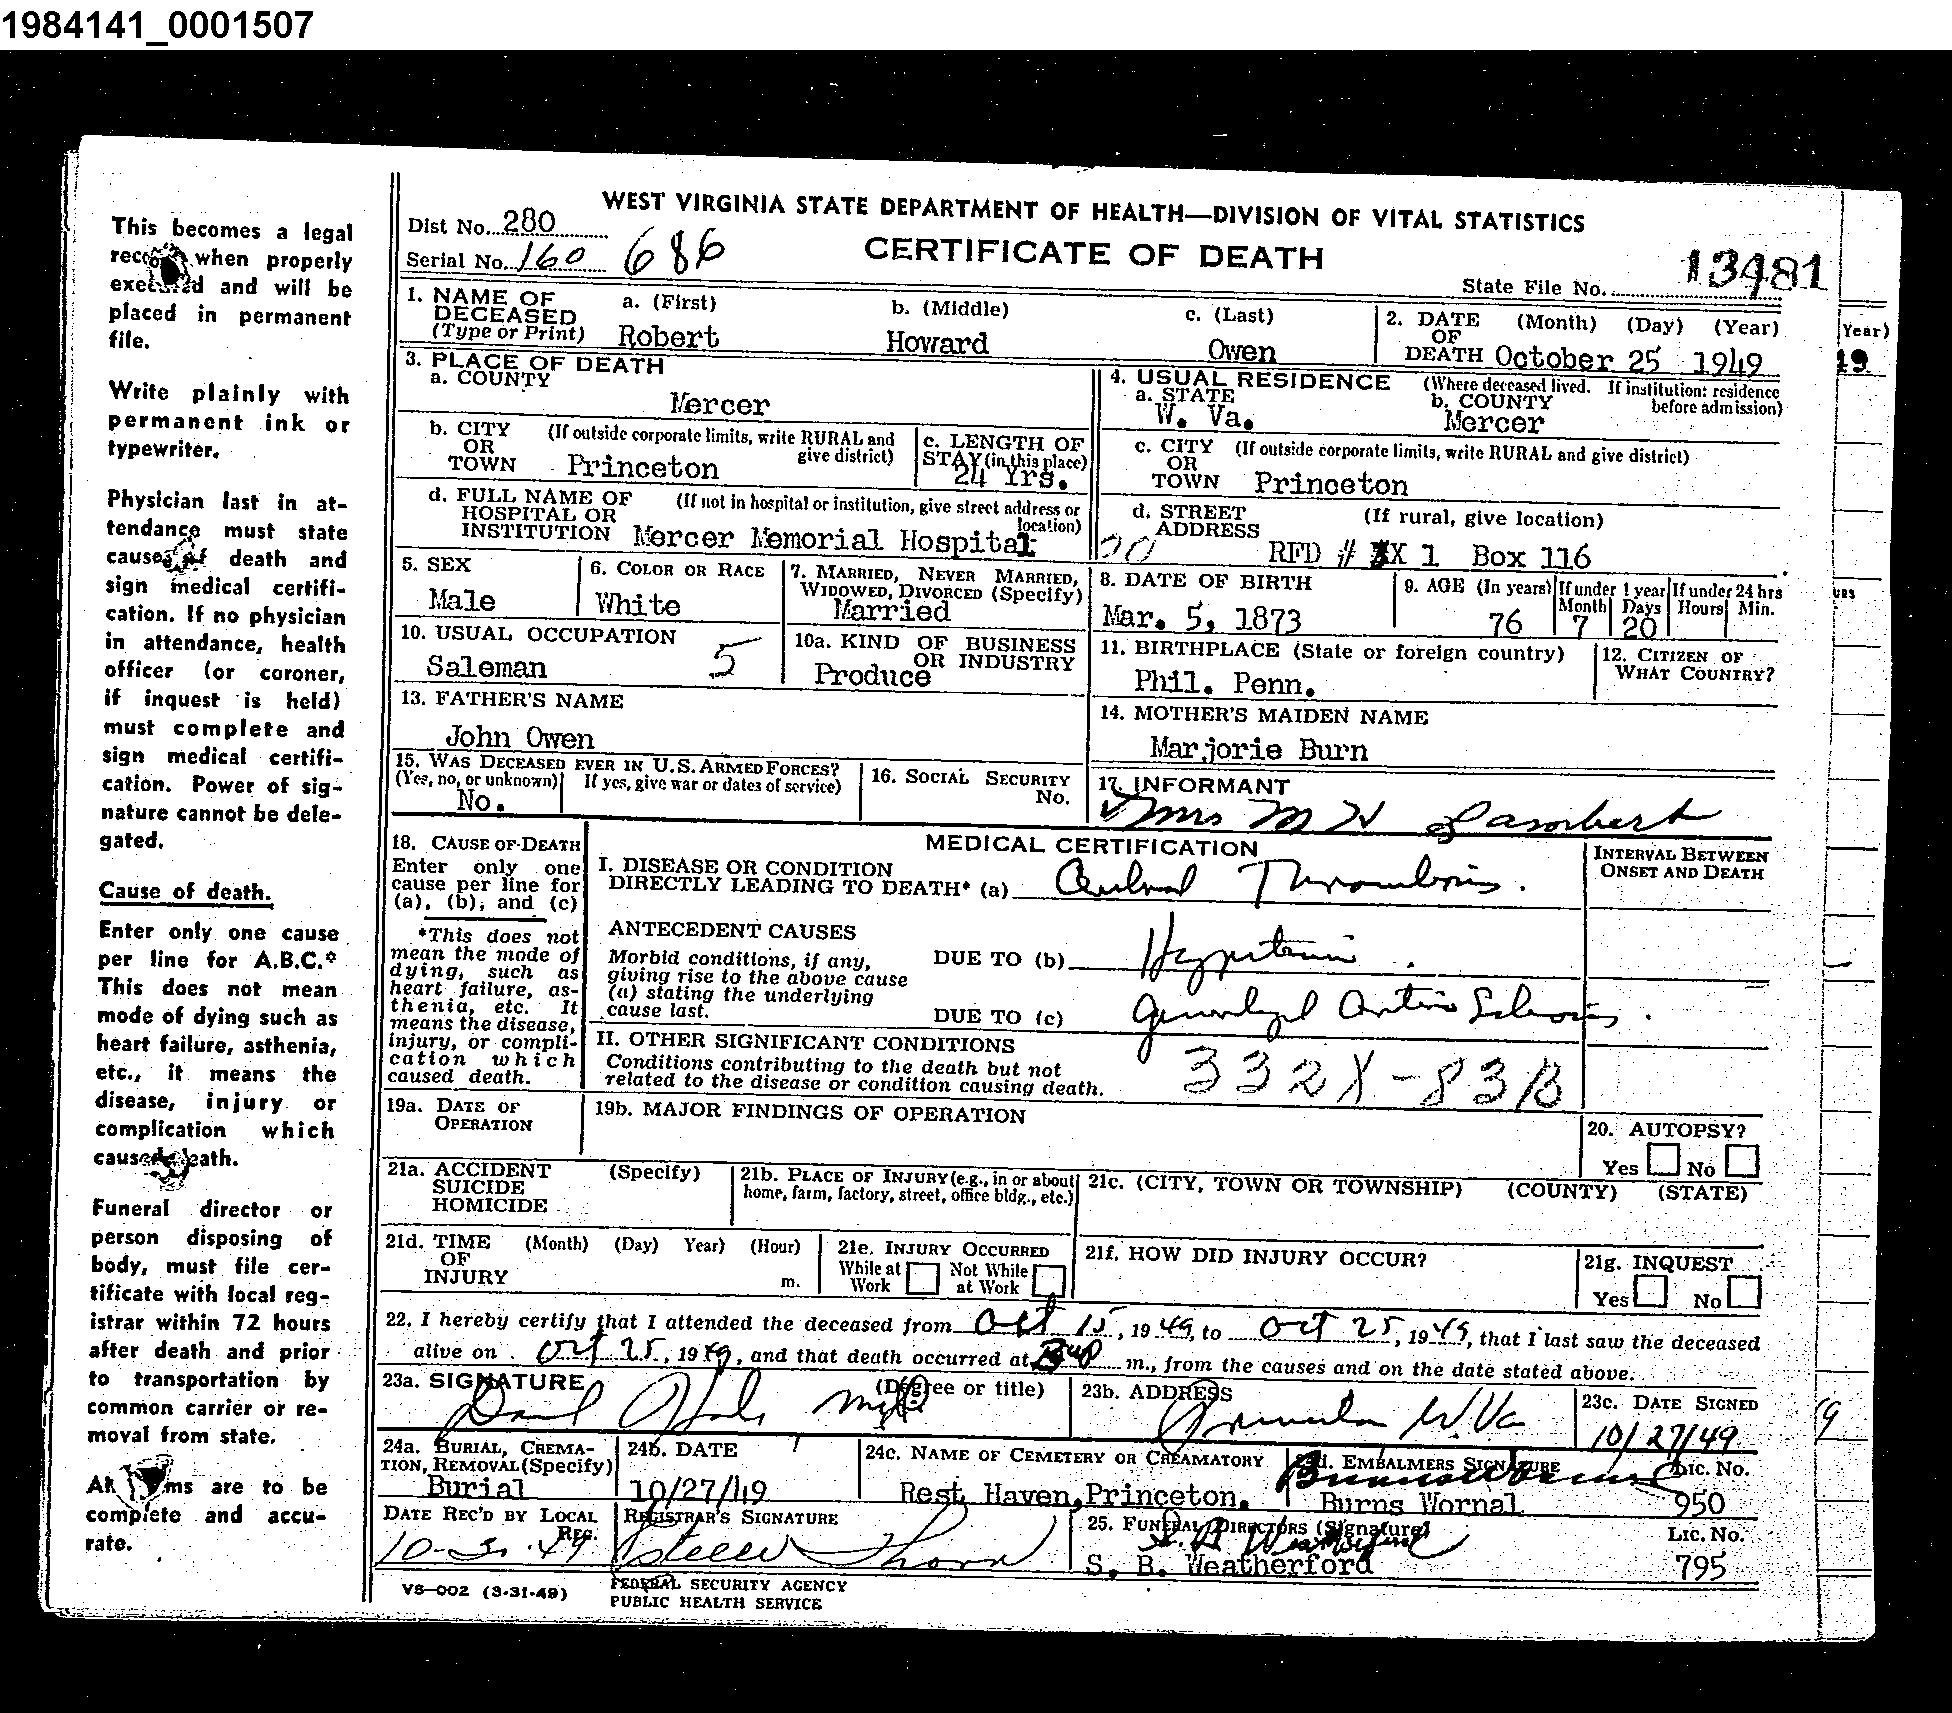 1984141_0001507
This becomes a legal
record when properly
executed and will be
placed in permanent
file.
Write plainly with
permanent ink or
typewriter.
Physician last in at-
tendance must state
cause of death and
sign medical certifi-
cation. If no physician
in attendance, health
officer (or coroner,
if inquest is held)
must complete and
sign medical certifi-
cation. Power of sig-
nature cannot be dele-
gated.
Cause of death.
Enter only one cause
per line for A.B.C.*
This does not mean
mode of dying such as
heart failure, asthenia,
etc., it means the
disease, injury or
complication which
caused death.
Funeral director or
person disposing of
body, must file cer-
tificate with local reg-
istrar within 72 hours
after death and prior
to transportation by
common carrier or re-
moval from state.
All items are to be
complete and accu-
rate.
WEST VIRGINIA STATE DEPARTMENT OF HEALTH—DIVISION OF VITAL STATISTICS
Dist No. 280
CERTIFICATE OF DEATH
Serial No. 160 686
State File No. 13481
1. NAME OF DECEASED (Type or Print) a. (First) b. (Middle) c. (Last)
Robert Howard Owen
2. DATE OF DEATH (Month) (Day) (Year)
October 25 1949
Year)
49
3. PLACE OF DEATH
a. COUNTY
Mercer
4. USUAL RESIDENCE (Where deceased lived. If institution: residence before admission)
a. STATE b. COUNTY
W. Va. Mercer
b. CITY OR TOWN (If outside corporate limits, write RURAL and give district)
Princeton
c. LENGTH OF STAY (in this place)
24 Yrs.
c. CITY OR TOWN (If outside corporate limits, write RURAL and give district)
Princeton
d. FULL NAME OF HOSPITAL OR INSTITUTION (If not in hospital or institution, give street address or location)
Mercer Memorial Hospital
d. STREET ADDRESS (If rural, give location)
RFD # X 1 Box 116
5. SEX
Male
6. COLOR OR RACE
White
7. MARRIED, NEVER MARRIED, WIDOWED, DIVORCED (Specify)
Married
8. DATE OF BIRTH
Mar. 5, 1873
9. AGE (In years) If under 1 year If under 24 hrs
Month Days Hours Min.
76 7 20
10. USUAL OCCUPATION
Saleman 5
10a. KIND OF BUSINESS OR INDUSTRY
Produce
11. BIRTHPLACE (State or foreign country)
Phil. Penn.
12. CITIZEN OF WHAT COUNTRY?
13. FATHER'S NAME
John Owen
14. MOTHER'S MAIDEN NAME
Marjorie Burn
15. WAS DECEASED EVER IN U.S. ARMED FORCES?
(Yes, no, or unknown) If yes, give war or dates of service)
No.
16. SOCIAL SECURITY No.
17. INFORMANT
Mrs M H Lambert
18. CAUSE OF DEATH
Enter only one
cause per line for
(a), (b), and (c)
*This does not
mean the mode of
dying, such as
heart failure, as-
thenia, etc. It
means the disease,
injury, or compli-
cation which
caused death.
MEDICAL CERTIFICATION
INTERVAL BETWEEN ONSET AND DEATH
I. DISEASE OR CONDITION
DIRECTLY LEADING TO DEATH* (a) Cerebral Thrombosis.
ANTECEDENT CAUSES
Morbid conditions, if any,
giving rise to the above cause
(a) stating the underlying
cause last.
DUE TO (b) Hypertension.
DUE TO (c) Generalized Arterio Sclerosis.
II. OTHER SIGNIFICANT CONDITIONS
Conditions contributing to the death but not
related to the disease or condition causing death.
332X-83B
19a. DATE OF OPERATION
19b. MAJOR FINDINGS OF OPERATION
20. AUTOPSY?
Yes No
21a. ACCIDENT SUICIDE HOMICIDE (Specify)
21b. PLACE OF INJURY (e.g., in or about home, farm, factory, street, office bldg., etc.)
21c. (CITY, TOWN OR TOWNSHIP) (COUNTY) (STATE)
21d. TIME OF INJURY (Month) (Day) Year) (Hour) m.
21e. INJURY OCCURRED
While at Work Not While at Work
21f. HOW DID INJURY OCCUR?
21g. INQUEST
Yes No
22. I hereby certify that I attended the deceased from Oct 15, 1949, to Oct 25, 1949, that I last saw the deceased
alive on Oct 25, 1949, and that death occurred at m., from the causes and on the date stated above.
23a. SIGNATURE (Degree or title)
23b. ADDRESS
Princeton W. Va
23c. DATE SIGNED
10/27/49
24a. BURIAL, CREMA-
TION, REMOVAL (Specify)
Burial
24b. DATE
10/27/49
24c. NAME OF CEMETERY OR CREAMATORY
Rest Haven, Princeton.
24d. EMBALMERS SIGNATURE Lic. No.
Burns Wornal 950
DATE REC'D BY LOCAL REG.
REGISTRAR'S SIGNATURE
25. FUNERAL DIRECTORS (Signature) Lic. No.
S. B. Weatherford
S. B. Weatherford 795
VS-002 (3-31-49)
FEDERAL SECURITY AGENCY
PUBLIC HEALTH SERVICE